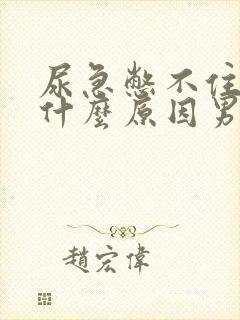 尿急憋不住
什麼原因男
趙宏偉